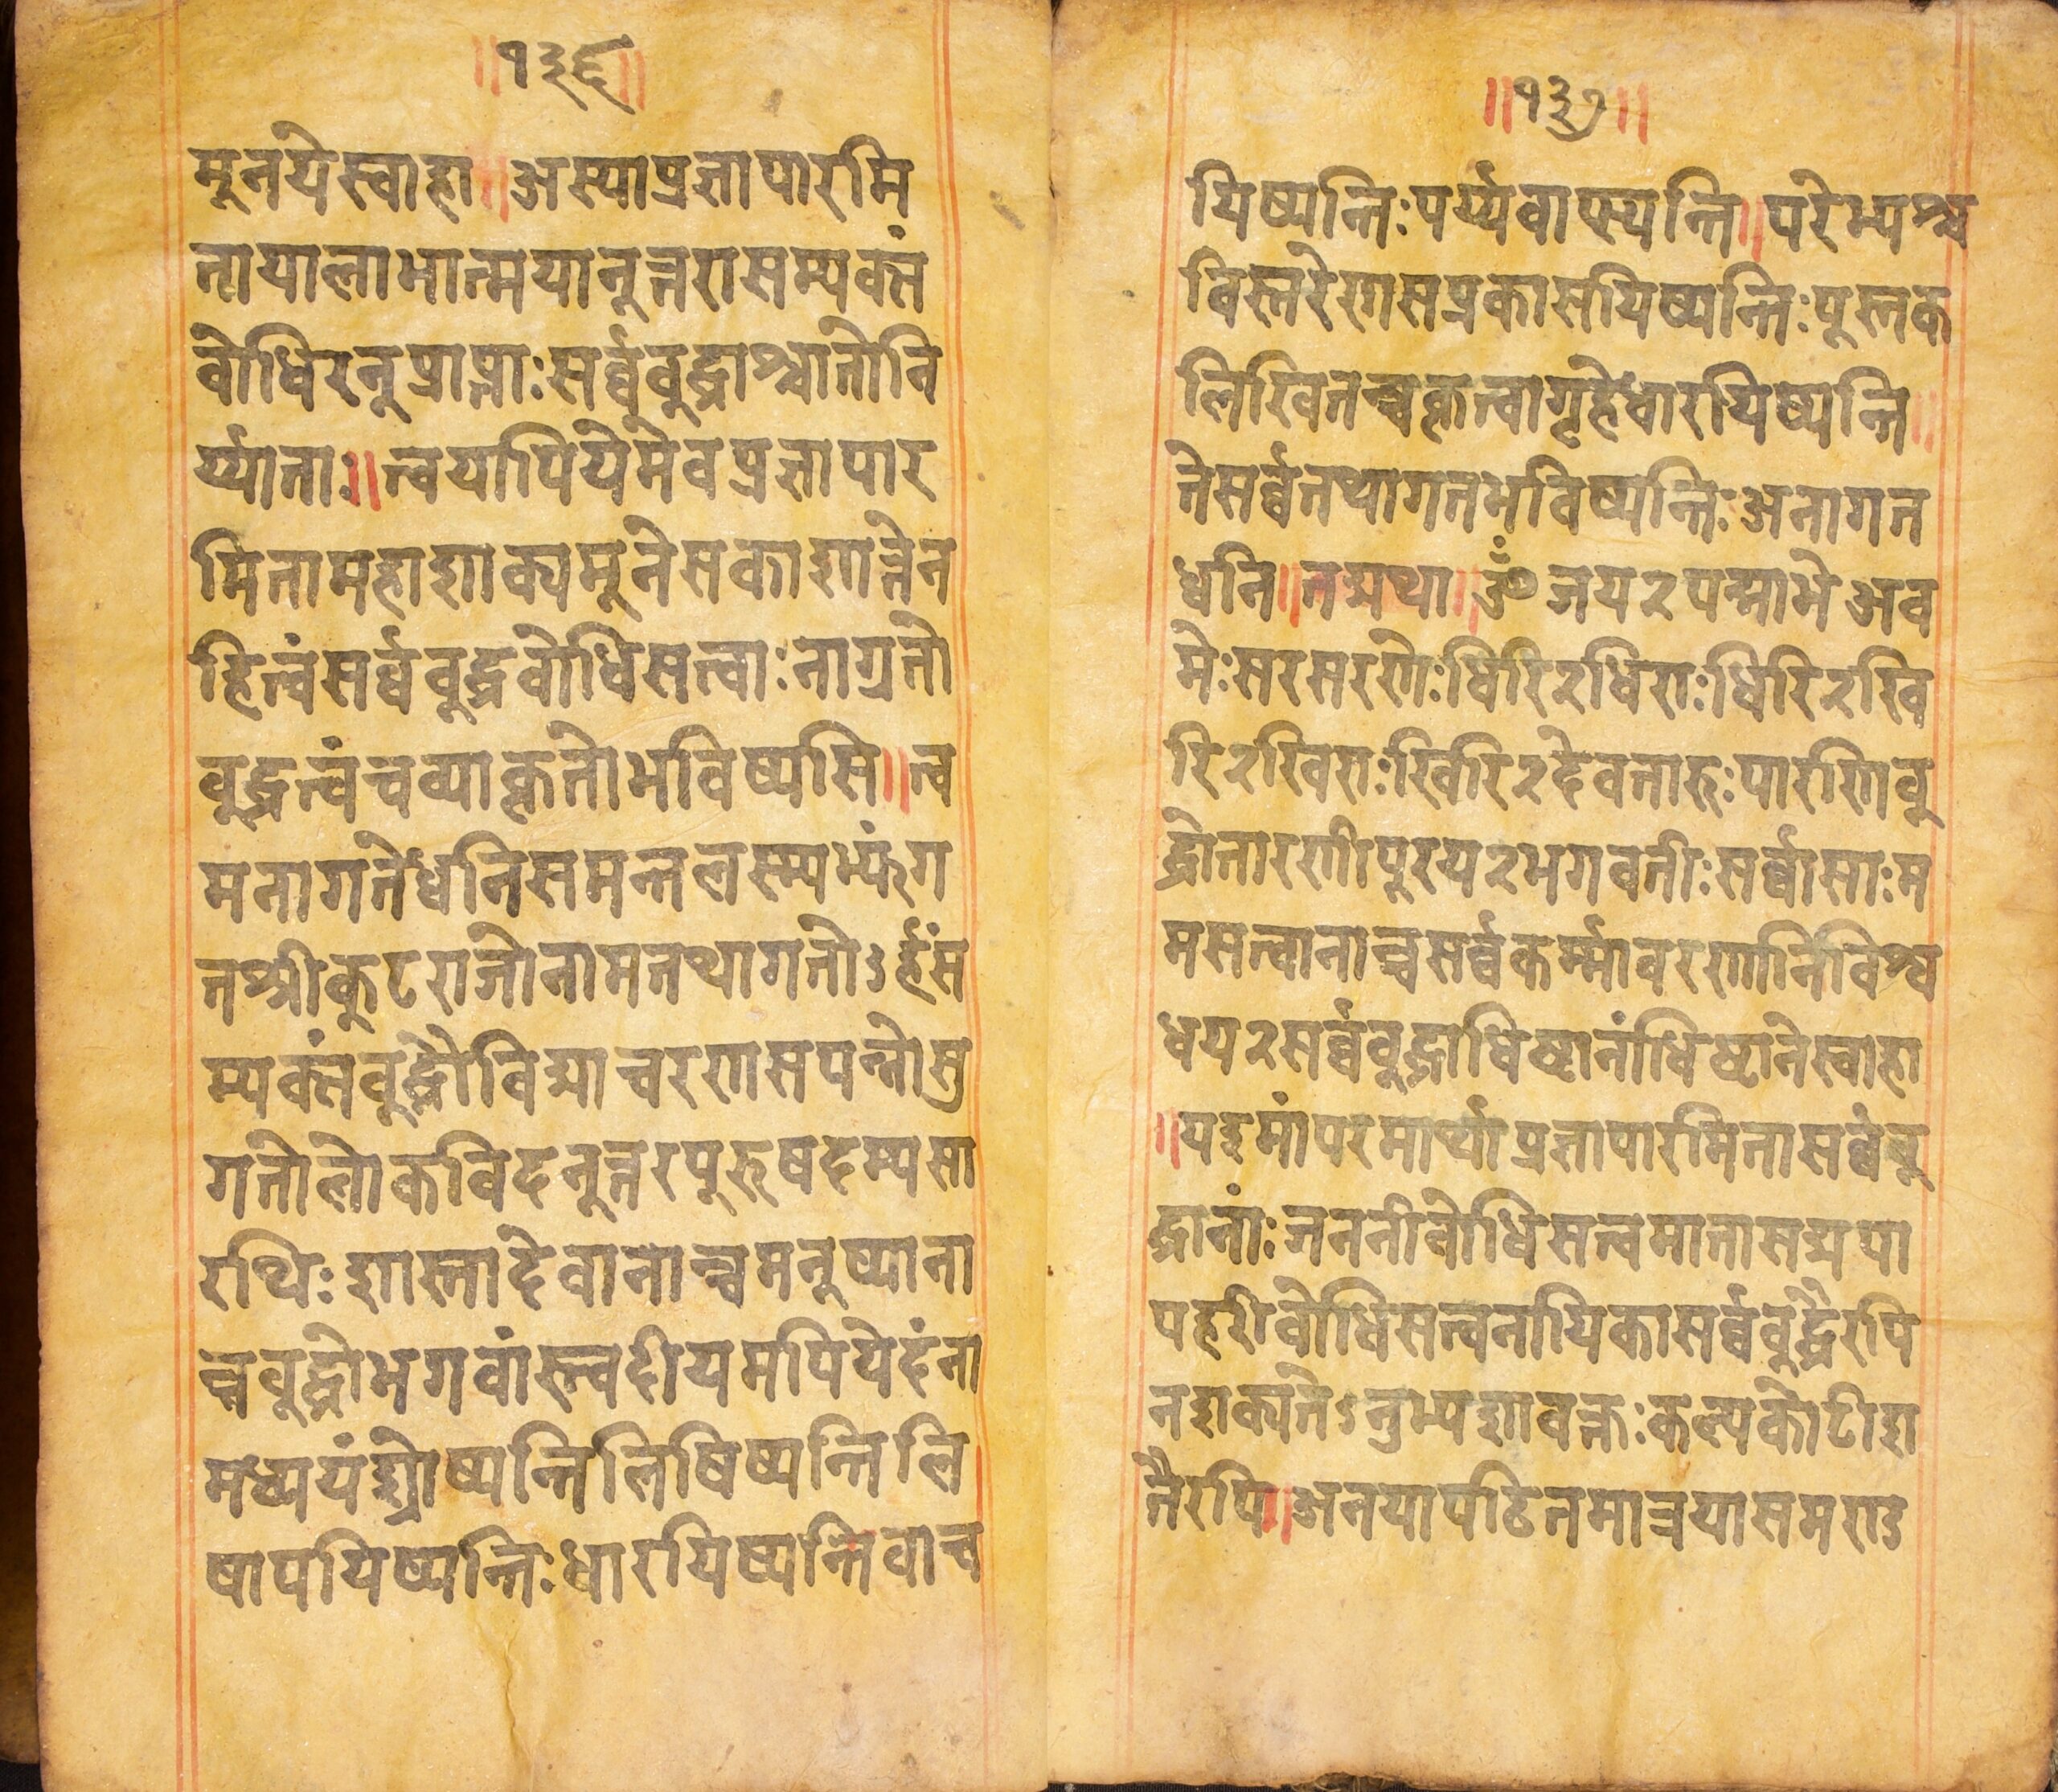 ॥१३६॥
मूनयेस्वाहा॥अस्याप्रज्ञापारमि
तायालाभात्मयानूत्तरासम्यक्तं
वोधिरनूप्राप्ताःसर्व्ववुद्धाश्चातोनि
र्य्याताः॥त्वयापियेमेवप्रज्ञापार
मितामहाशाक्यमूनेसकाशात्तेन
हित्वंसर्व्ववूद्धवोधिसत्वाःनाग्रतो
वूद्धत्वंचव्याकृतोभविष्यसि॥त्व
मनागतेध्वनिसमन्तलस्म्यभ्यंग
तश्रीकुटराजोनामतथागतोऽर्हंस
म्यक्तंवूद्धौविद्याचरणसपन्तोसु
गतोलोकविदनूत्तरपुरूषदम्यसा
रथिःशास्तादेवानाञ्चमनुष्याना
ञ्चवूद्धोभगवांस्त्वदीयमपियेदंना
मध्ययंश्रोष्यन्तिलिषिष्यन्तिलि
षापयिष्यन्तिःधारयिष्यन्तिवाच
॥१३७॥
यिष्यन्तिःपर्य्यवाप्स्यन्ति॥परेभ्यश्च
विस्तरेणसप्रकासयिष्यन्तिःपूस्तक
लिखितञ्चकृत्वागृहेधारयिष्यन्ति॥
तेसर्व्वतथागतभविष्यन्तिःअनागत
ध्वनि॥तद्यथा॥ॐजय२पद्माभेअव
मेःसरसरणेःधिरि२धिराःधिरि२खि
रि२खिराःखिरि२देवतारुःपारणिवु
द्धोतारणीपूरय२भगवतीःसर्व्वासाःम
मसत्वानाञ्चसर्व्वकर्म्मावरणानिविश्व
धय२सर्व्ववुद्धाधिष्टानांधिष्टानेस्वाहा
॥यइमांपरमार्थाप्रज्ञापारमितासर्व्वंवु
द्धानांःजननीवोधिसत्वमातासद्यपा
पहरीवोधिसत्वनायिकासर्व्ववुद्धैरपि
नशक्यतेऽनुभ्यशावक्तःकल्पकोटीश
तैरपि॥अनयापठितमात्रयासमराऽ